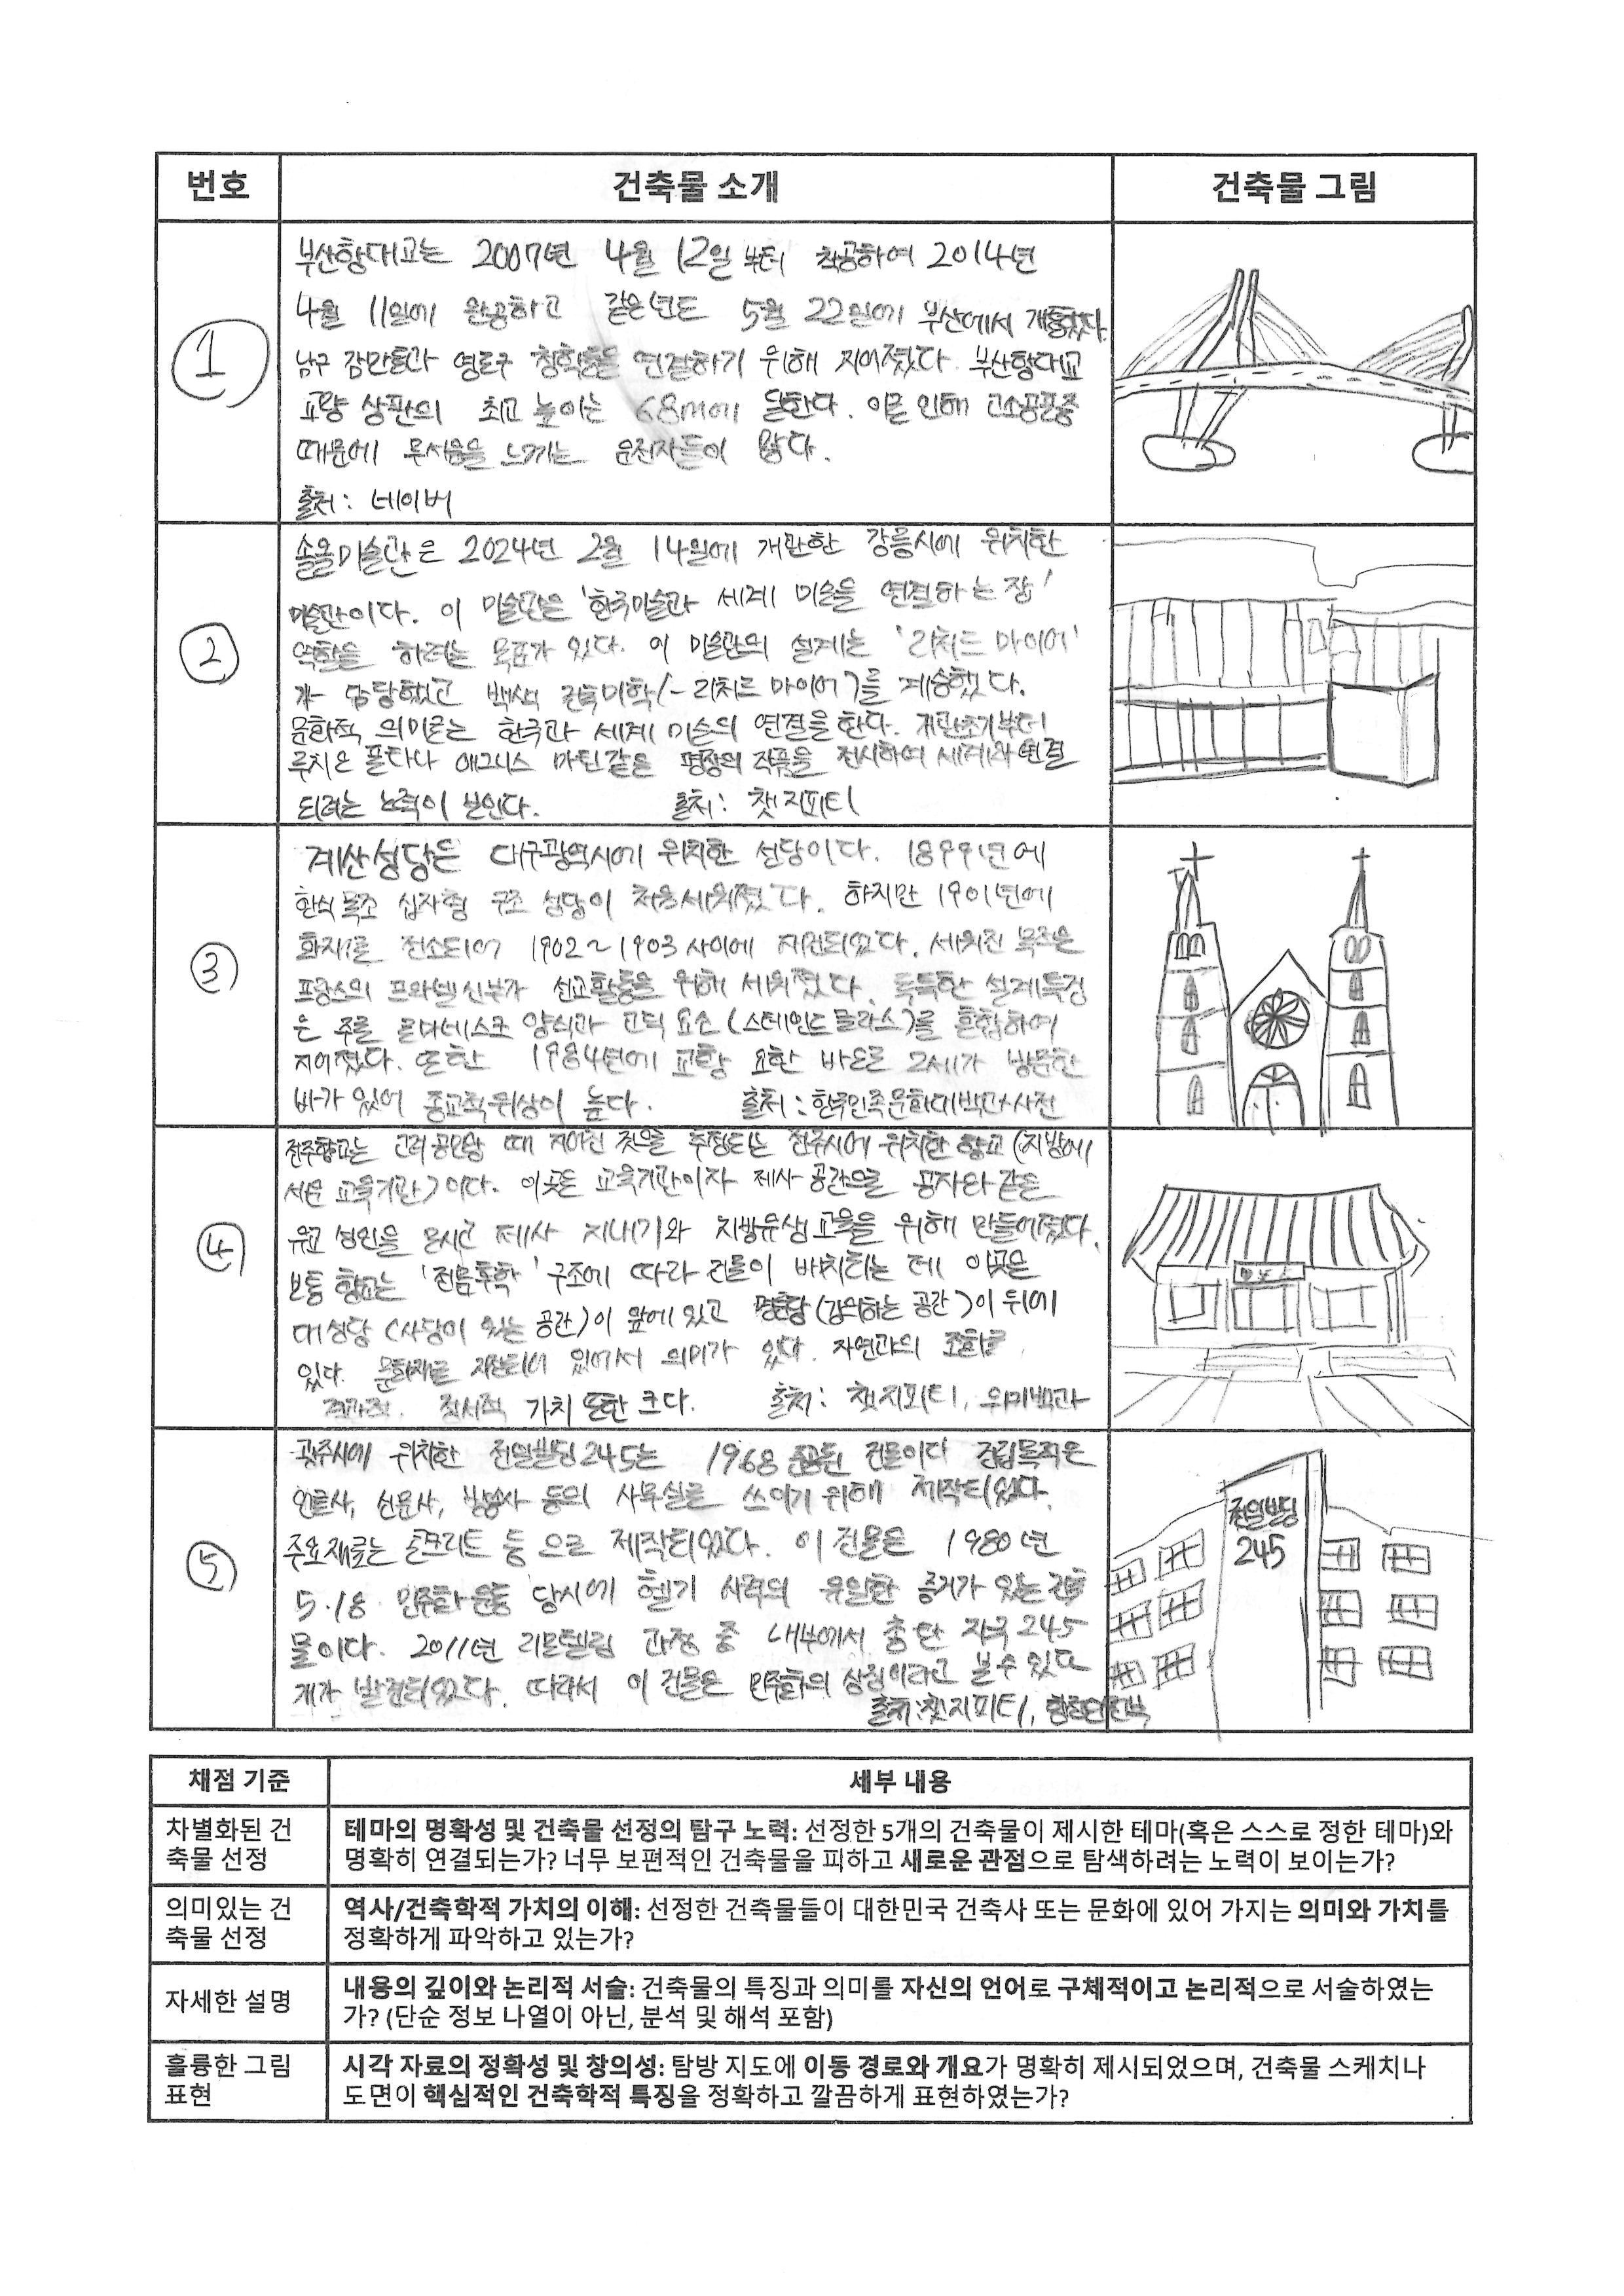 번호 건축물 소개 건축물 그림
1
부산항대교는 2007년 4월 12일 부터 착공하여 2014년
4월 11일에 완공하고 같은년도 5월 22일에 부산에서 개통했다.
남구 감만동과 영도구 청학동을 연결하기 위해 지어졌다. 부산항대교
교량 상판의 최고 높이는 68m에 달한다. 이로 인해 고소공포증
때문에 무서움을 느끼는 운전자들이 많다.
출처: 네이버
2
솔올미술관은 2024년 2월 14일에 개관한 강릉시에 위치한
미술관이다. 이 미술관은 '한국미술과 세계 미술을 연결하는 장'
역할을 하려는 목표가 있다. 이 미술관의 설계는 '리처드 마이어'
가 담당했고 백색 건축미학(-리처드 마이어)를 계승했다.
문화적 의미로는 한국과 세계 미술의 연결을 한다. 개관초기부터
루치오 폰타나 애그니스 마틴같은 거장의 작품을 전시하여 세계와 연결
되려는 노력이 보인다. 출처: 챗지피티
3
계산성당은 대구광역시에 위치한 성당이다. 1899년에
한식 목조 십자형 구조 성당이 처음세워졌다. 하지만 1901년에
화재로 전소되어 1902~1903 사이에 재건되었다. 세워진 목적은
프랑스의 프와넬신부가 선교활동을 위해 세워졌다. 독특한 설계특징
은 주를 로마네스크 양식과 고딕 요소(스테인드글라스)를 혼합하여
지어졌다. 또한 1984년에 교황 요한 바오로 2세가 방문한
바가 있어 종교적위상이 높다. 출처: 한국민족문화대백과사전
4
전주향교는 고려 공민왕 때 지어진 것으로 추정되는 전주시에 위치한 향교(지방에
세운 교육기관)이다. 이곳은 교육기관이자 제사 공간으로 공자와 같은
유교 성인을 모시고 제사 지내기와 지방유생교육을 위해 만들어졌다.
보통 향교는 '전묘후학' 구조에 따라 건물이 배치되는 데 이곳은
대성당 (사당이 있는 공간)이 앞에 있고 명륜당(강의하는 공간)이 뒤에
있다. 문화재로 지정되어 있어서 의미가 있다. 자연과의 조화로
가치 또한 크다. 출처: 챗지피티, 위키백과
5
광주시에 위치한 전일빌딩245는 1968 준공된 건물이다 건립목적은
언론사, 신문사, 방송사 등의 사무실로 쓰이기 위해 제작되었다.
주요재료는 콘크리트 등 으로 제작되었다. 이 건물은 1980년
5.18 민주화운동 당시에 헬기 사격의 유일한 증거가 있는 건축
물이다. 2011년 리모델링 과정 중 내부에서 총탄 자국 245
개가 발견되었다. 따라서 이 건물은 민주화의 상징이라고 볼수 있다
출처: 챗지피티,
전일빌딩
245
채점 기준 세부 내용
차별화된 건
축물 선정
테마의 명확성 및 건축물 선정의 탐구 노력: 선정한 5개의 건축물이 제시한 테마(혹은 스스로 정한 테마)와
명확히 연결되는가? 너무 보편적인 건축물을 피하고 새로운 관점으로 탐색하려는 노력이 보이는가?
의미있는 건
축물 선정
역사/건축학적 가치의 이해: 선정한 건축물들이 대한민국 건축사 또는 문화에 있어 가지는 의미와 가치를
정확하게 파악하고 있는가?
자세한 설명
내용의 깊이와 논리적 서술: 건축물의 특징과 의미를 자신의 언어로 구체적이고 논리적으로 서술하였는
가? (단순 정보 나열이 아닌, 분석 및 해석 포함)
훌륭한 그림
표현
시각 자료의 정확성 및 창의성: 탐방 지도에 이동 경로와 개요가 명확히 제시되었으며, 건축물 스케치나
도면이 핵심적인 건축학적 특징을 정확하고 깔끔하게 표현하였는가?